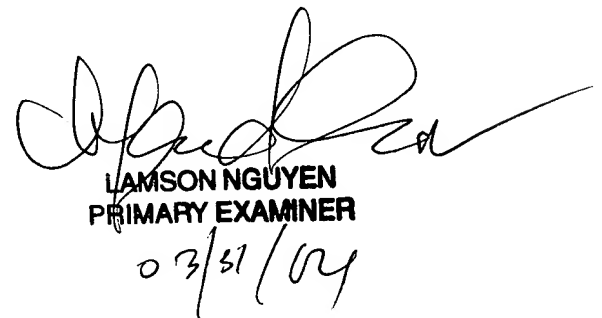 LAMSON NGUYEN
PRIMARY EXAMINER
03/31/04